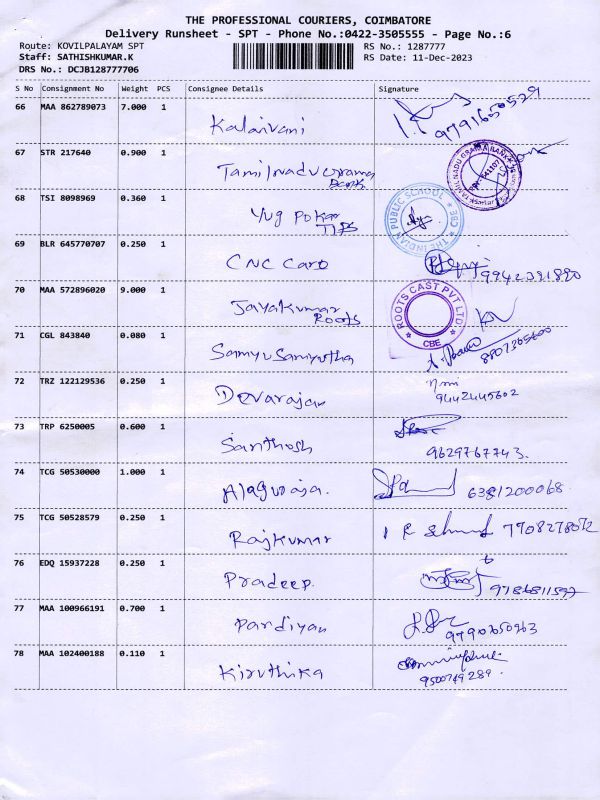 THE PROFESSIONAL COURIERS, COIMBATORE
Delivery Runsheet - SPT - Phone No.:0422-3505555 - Page No.:6
Route: KOVILPALAYAM SPT
RS No.: 1287777
Staff: SATHISHKUMAR.K
RS Date: 11-Dec-2023
DRS No.: DCJB128777706
S No Consignment No Weight PCS Consignee Details Signature
66 MAA 862789073 7.000 1
Kalaivani
9791650529
67 STR 217640 0.900 1
Tamilnadu Grama
Bank
TAMIL NADU GRAMA BANK
68 TSI 8098969 0.360 1
Yug Pokar
TIPS
THE INDIAN PUBLIC SCHOOL CBE
69 BLR 645770707 0.250 1
CNC Card
9942391890
70 MAA 572896020 9.000 1
Jayakumar
Roots
ROOTS CAST PVT LTD
CBE
71 CGL 843840 0.080 1
Samyu Samyutha
8807365600
72 TRZ 122129536 0.250 1
Devarajan
9442445602
73 TRP 6250005 0.600 1
Santhosh
9629767743.
74 TCG 50530000 1.000 1
Alaguraja.
6381200068.
75 TCG 50528579 0.250 1
Rajkumar
7708278072
76 EDQ 15937228 0.250 1
Pradeep.
9786811597
77 MAA 100966191 0.700 1
Pardiyan
9790650963
78 MAA 102400188 0.110 1
Kiruthika
9500749289.